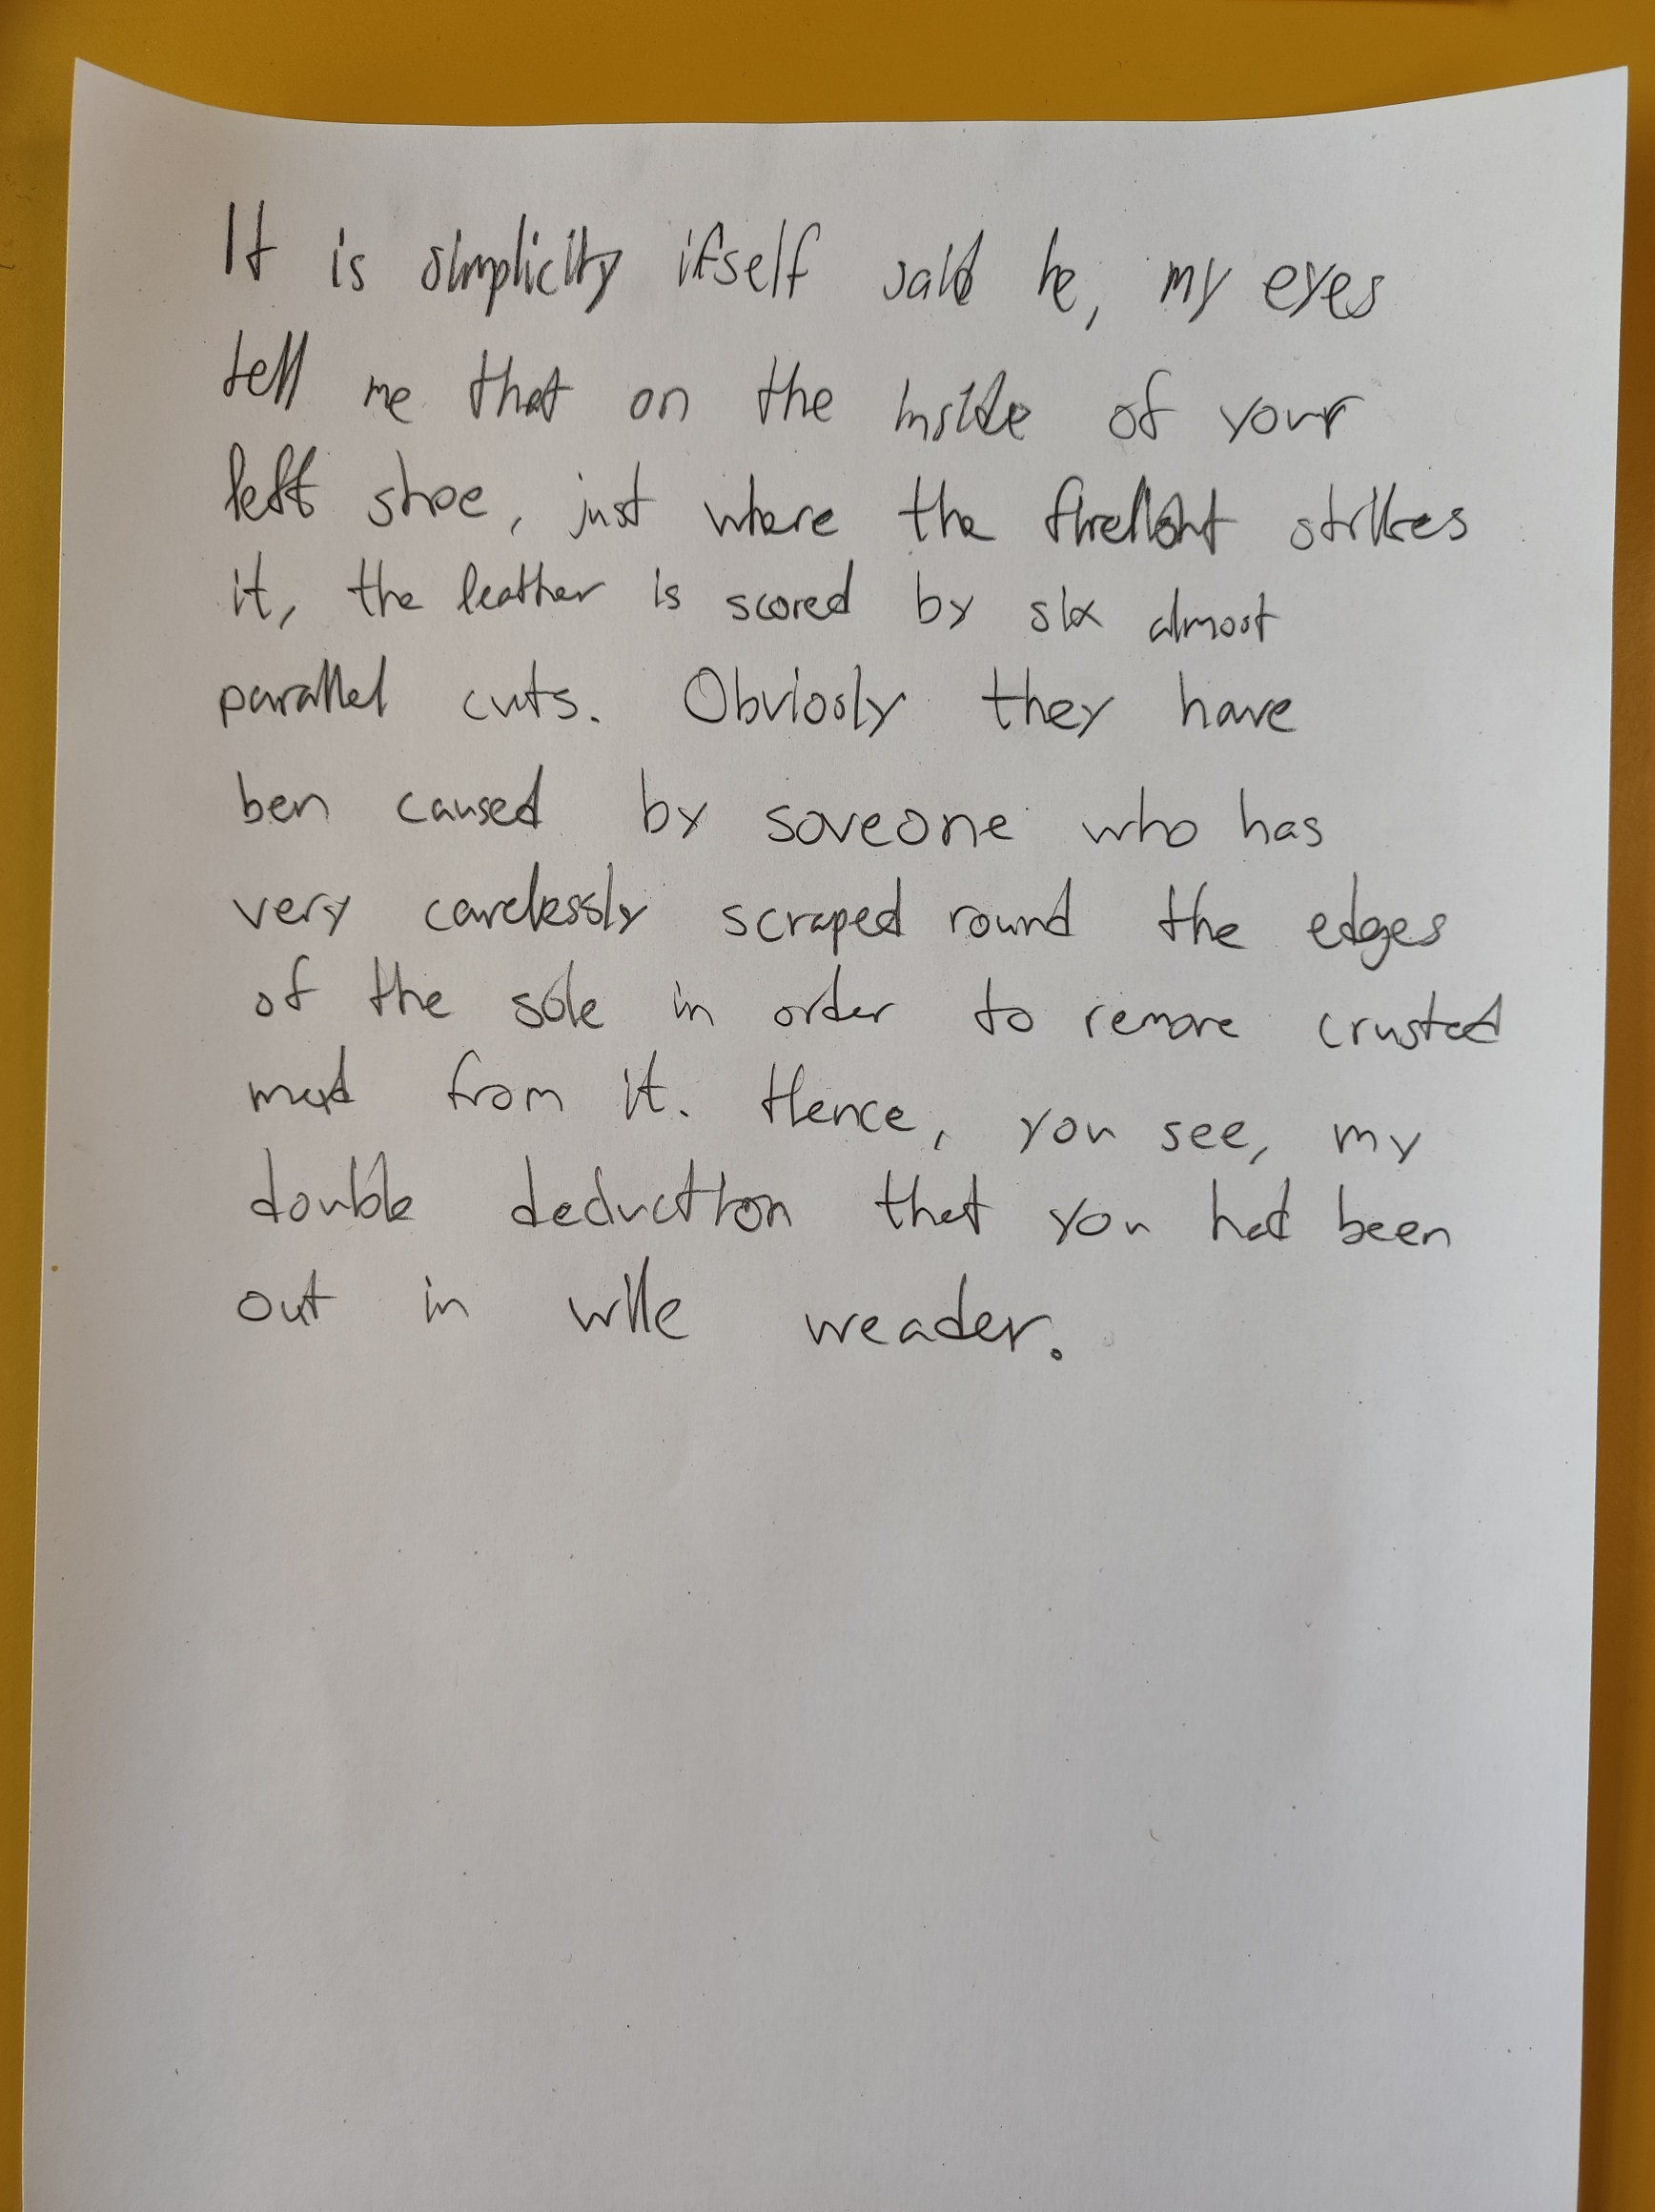 It is simplicity itself said he, my eyes
tell me that on the inside of your
left shoe, just where the strikes
it, the leather is scored by six almost
parallel cuts. Obviosly they have
ben caused by soveone who has
very carelessly scraped round the edges
of the sole in order to remove crusted
mud from it. Hence, you see, my
double deduction that you had been
out in wile weader.